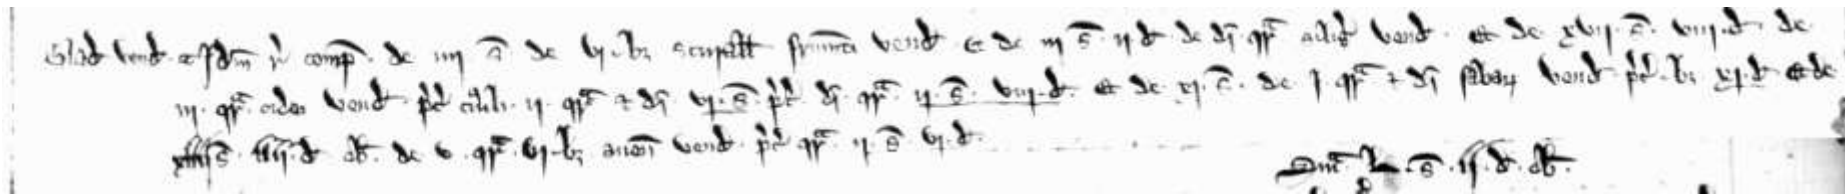 Blad vend Idm r comp. de iiij s de vi. b3 scurall frumti vend Et de iij s. ij d de di qr vend. Et de xvij. s. viij. d de
iij. qr vend p'c ij. qr & di vj. s p'c di qr ij. s. viij. d. Et de xj. s. de j qr & di fabar vend p'c b3 xj. d Et de
xiiij s iiij. d ob. de v. qr. vj. b3 auen vend p'c qr ij s vj. d.
Sm L. s. ij. d. ob.